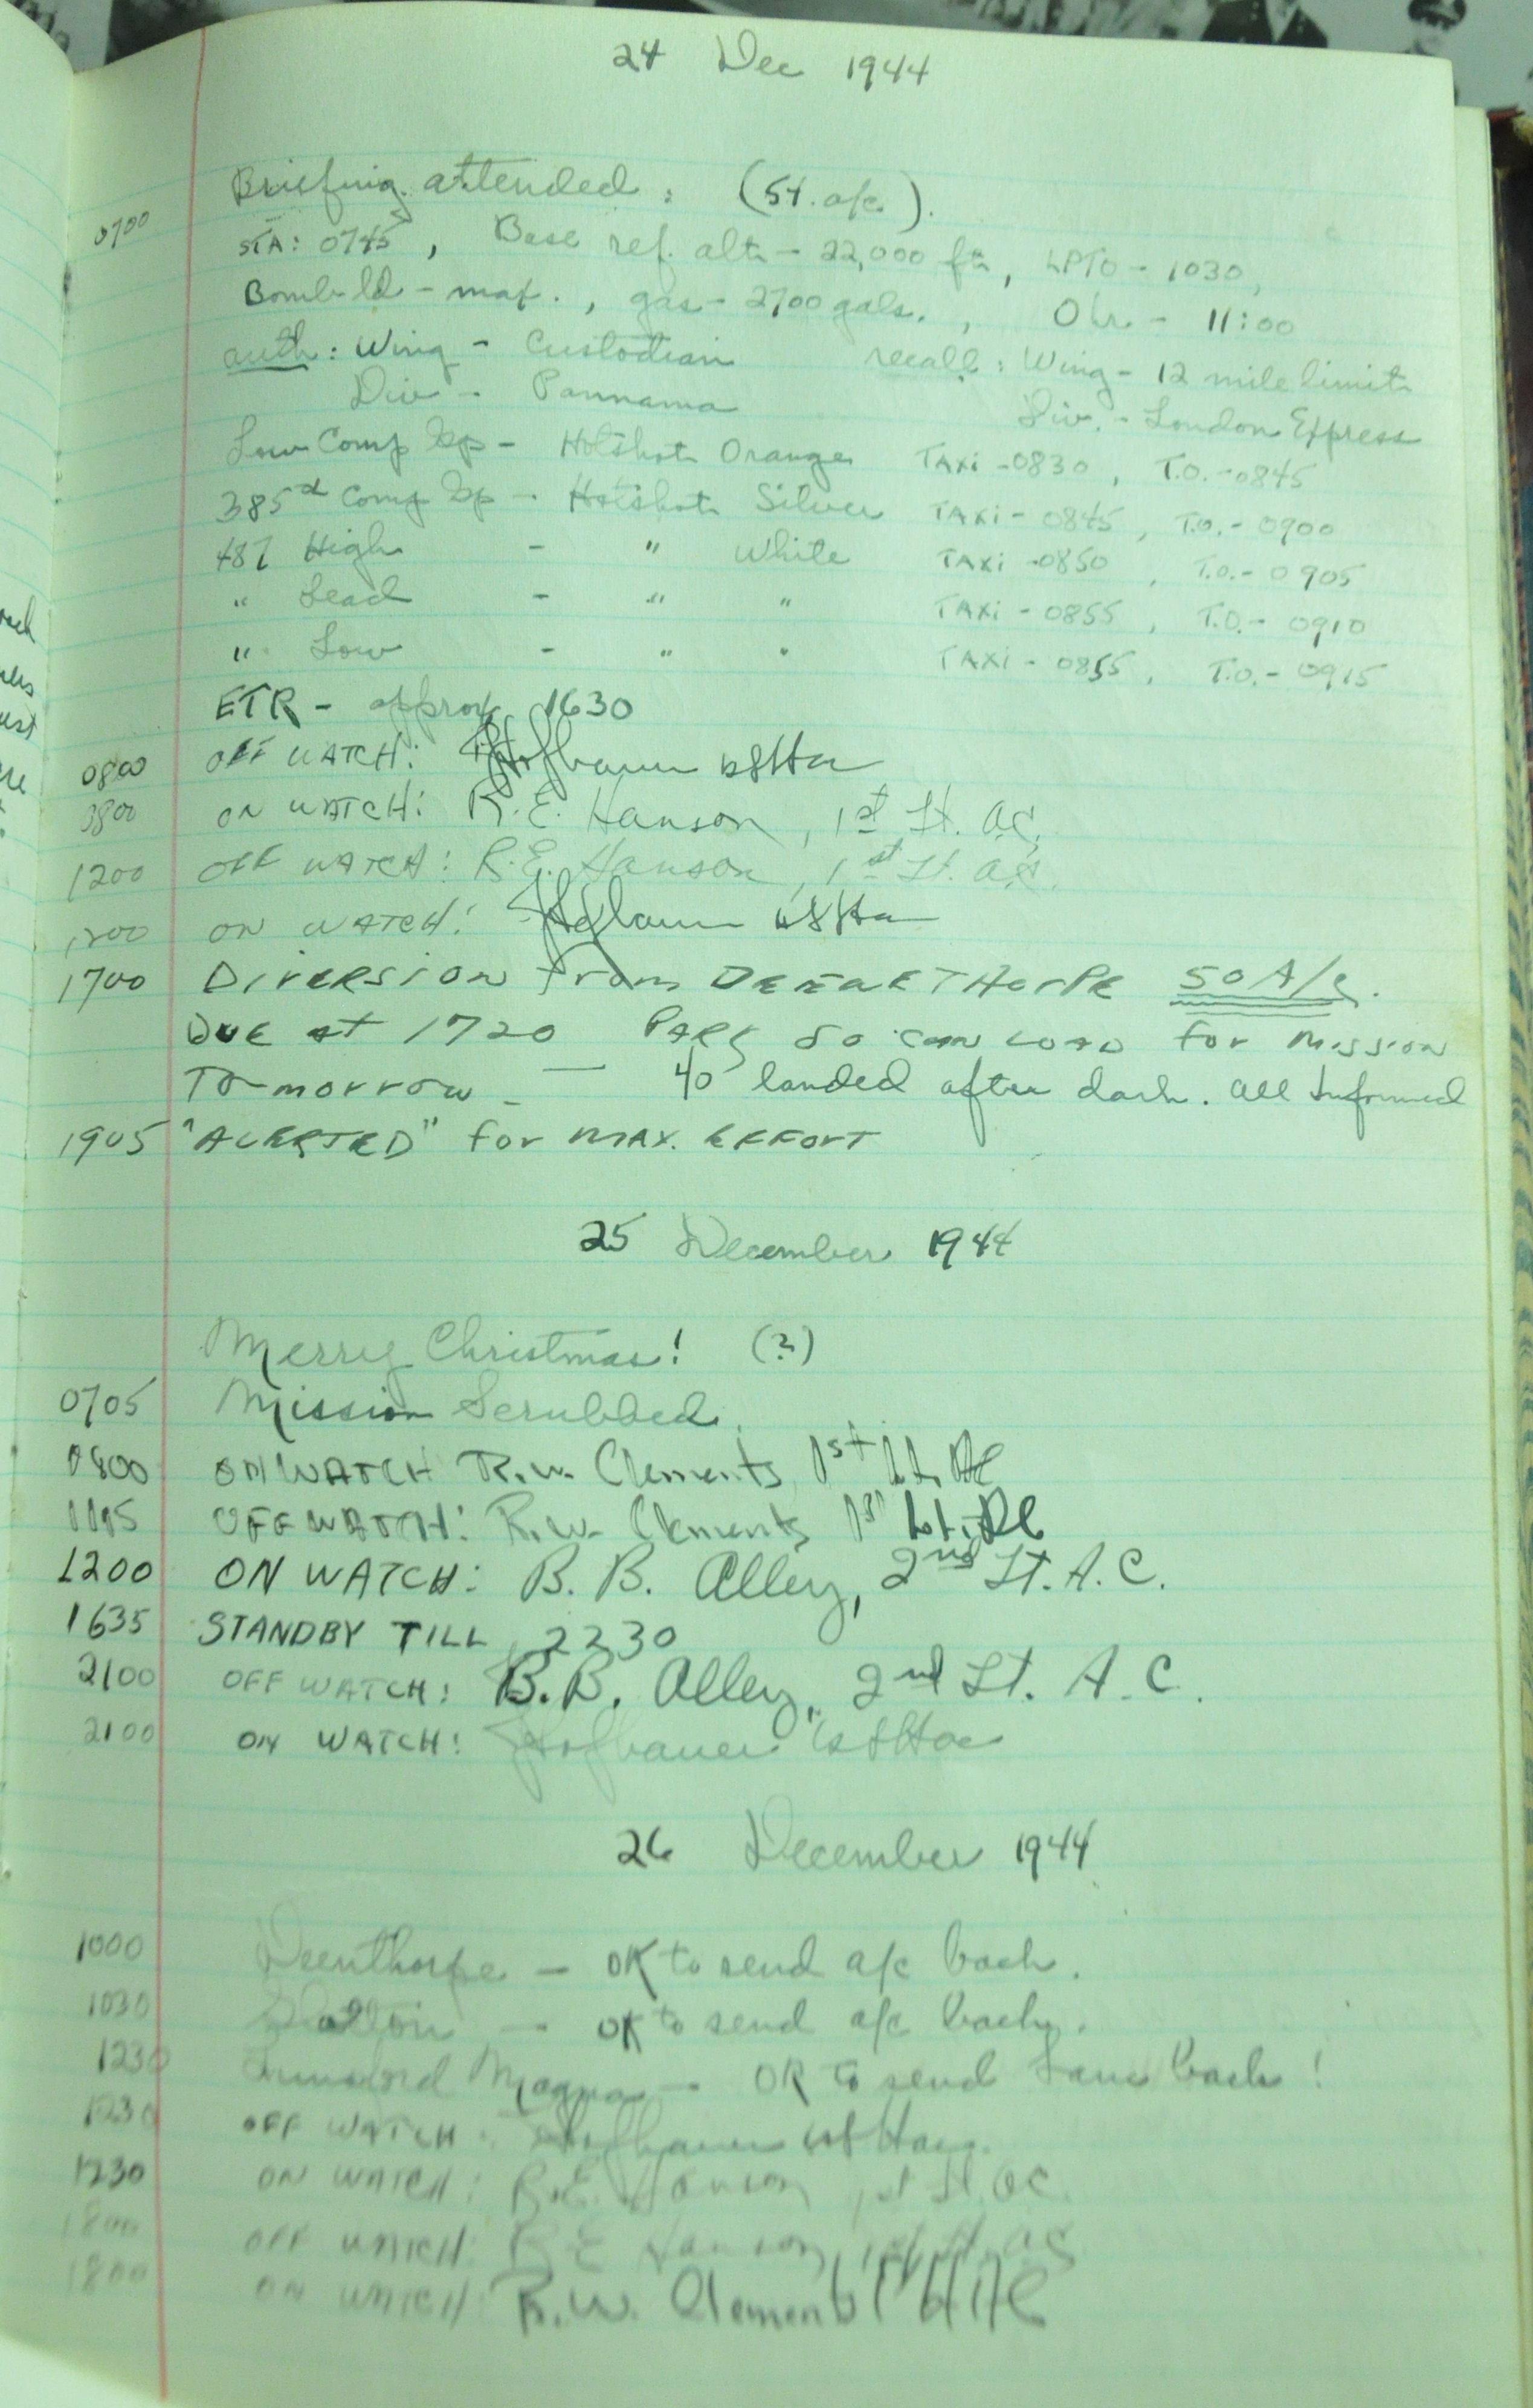 24 Dec 1944
0700 Briefing attended: (54 a/c).
STA: 0745, Base ref. alt. - 22,000 ft., LPTO - 1030,
Bomb ld - max., gas - 2700 gals., O hr. - 11:00
auth: Wing - Custodian recall: Wing - 12 mile limit
Div - Pannama Div. - London Express
Low Comp Gp - Hotshot Orange TAXi - 0830, T.O. - 0845
385th Comp Gp - Hotshot Silver TAXi - 0845, T.O. - 0900
487 High - " White TAXi - 0850, T.O. - 0905
" Lead - " " TAXi - 0855, T.O. - 0910
" Low - " " TAXi - 0855, T.O. - 0915
ETR - approx 1630
0800 OFF WATCH: Hofbauer 1st Lt ac
0800 ON WATCH: R.E. Hanson, 1st Lt. AC.
1200 OFF WATCH: R.E. Hanson, 1st Lt. AC.
1200 ON WATCH: Hofbauer 1st Lt ac
1700 DIVERSION from DEENETHORPE 50 A/C.
DUE at 1720 PARK so can LOAD for Mission
Tomorrow - 40 landed after dark. All Informed
1905 "ALERTED" for MAX. EFFORT
25 December 1944
Merry Christmas! (?)
0705 Mission Scrubbed.
0800 ON WATCH R.W. Clements 1st Lt. AC
1195 OFF WATCH: R.W. Clements 1st Lt. AC
1200 ON WATCH: B. B. Alley, 2nd Lt. A.C.
1635 STANDBY TILL 2230
2100 OFF WATCH: B.B. Alley, 2nd Lt. A.C.
2100 ON WATCH: Hofbauer 1st Lt ac
26 December 1944
1000 Deenthorpe - OK to send a/c back.
1030 - OK to send a/c back.
1230 Magna - OK to send Lanc back!
1230 OFF WATCH: Hofbauer 1st Lt ac.
1230 ON WATCH: R.E. Hanson, 1st Lt. AC.
1800 OFF WATCH: R E Hanson, 1st Lt. AC
1800 ON WATCH: R.W. Clements 1st Lt AC